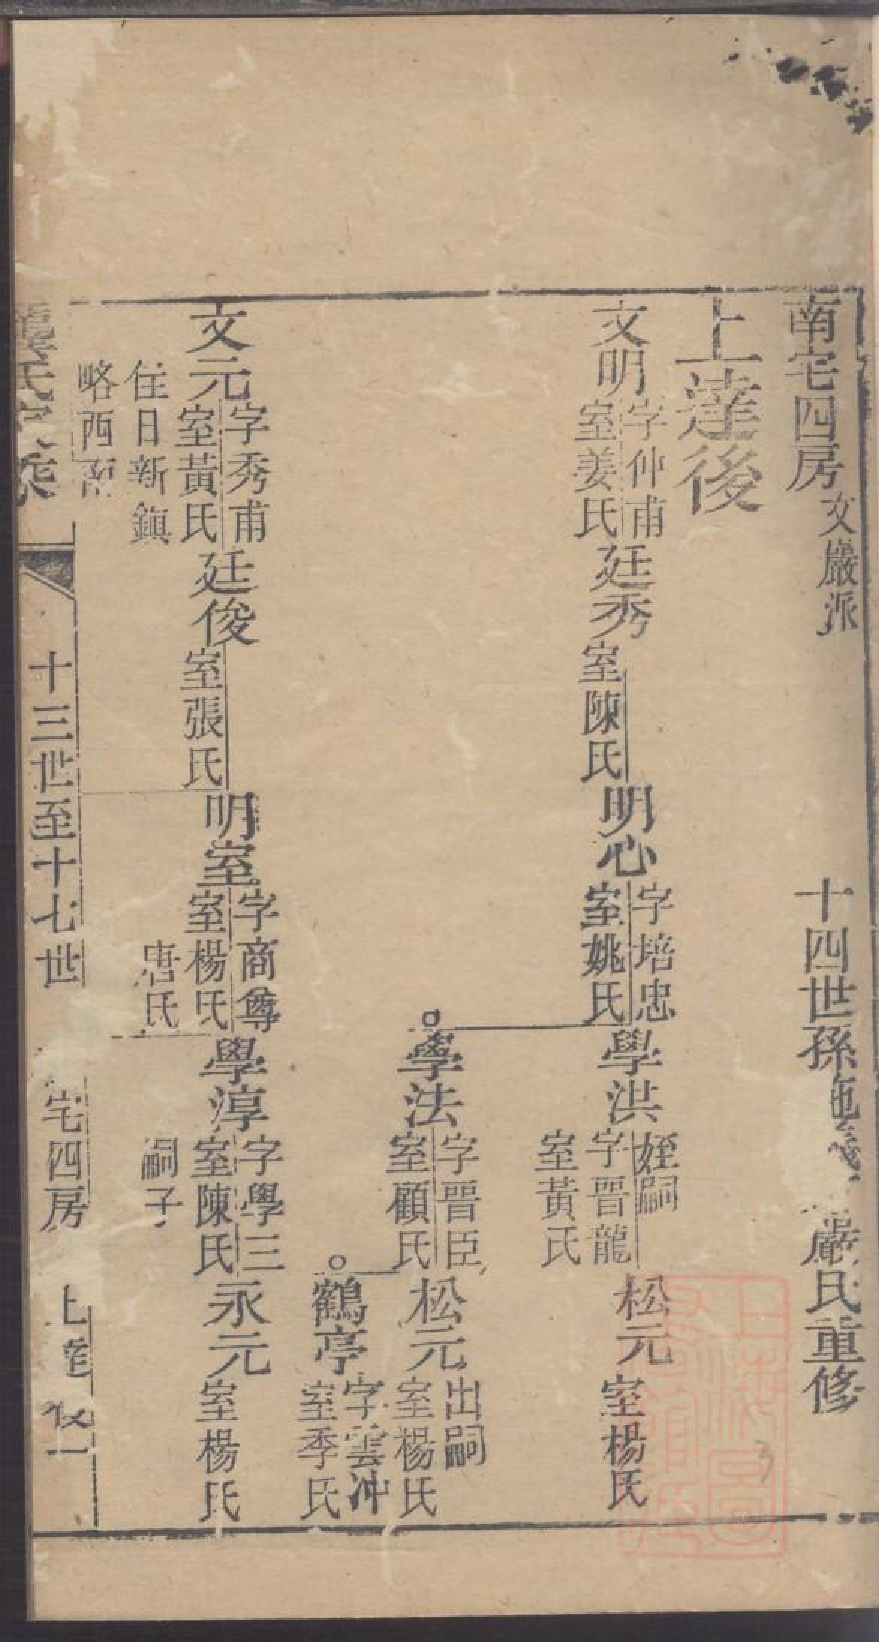 南宅四房 文巖派 十四世孫 嚴氏重修
上達後
文明 字仲甫 室姜氏 廷秀 室陳氏 明心 字培忠 室姚氏 學洪 姪嗣 字晋龍 室黃氏 松元 室楊氏
學法 字晋臣 室顧氏 松元 出嗣 室楊氏
鶴亭 字雲冲 室季氏
文元 字秀甫 室黃氏 住日新鎮 略西南 廷俊 室張氏 明室 字商尊 室楊氏 唐氏 學淳 字學三 室陳氏 嗣子 永元 室楊氏
龔氏家乘 十三世至十七世 宅四房 上達 一